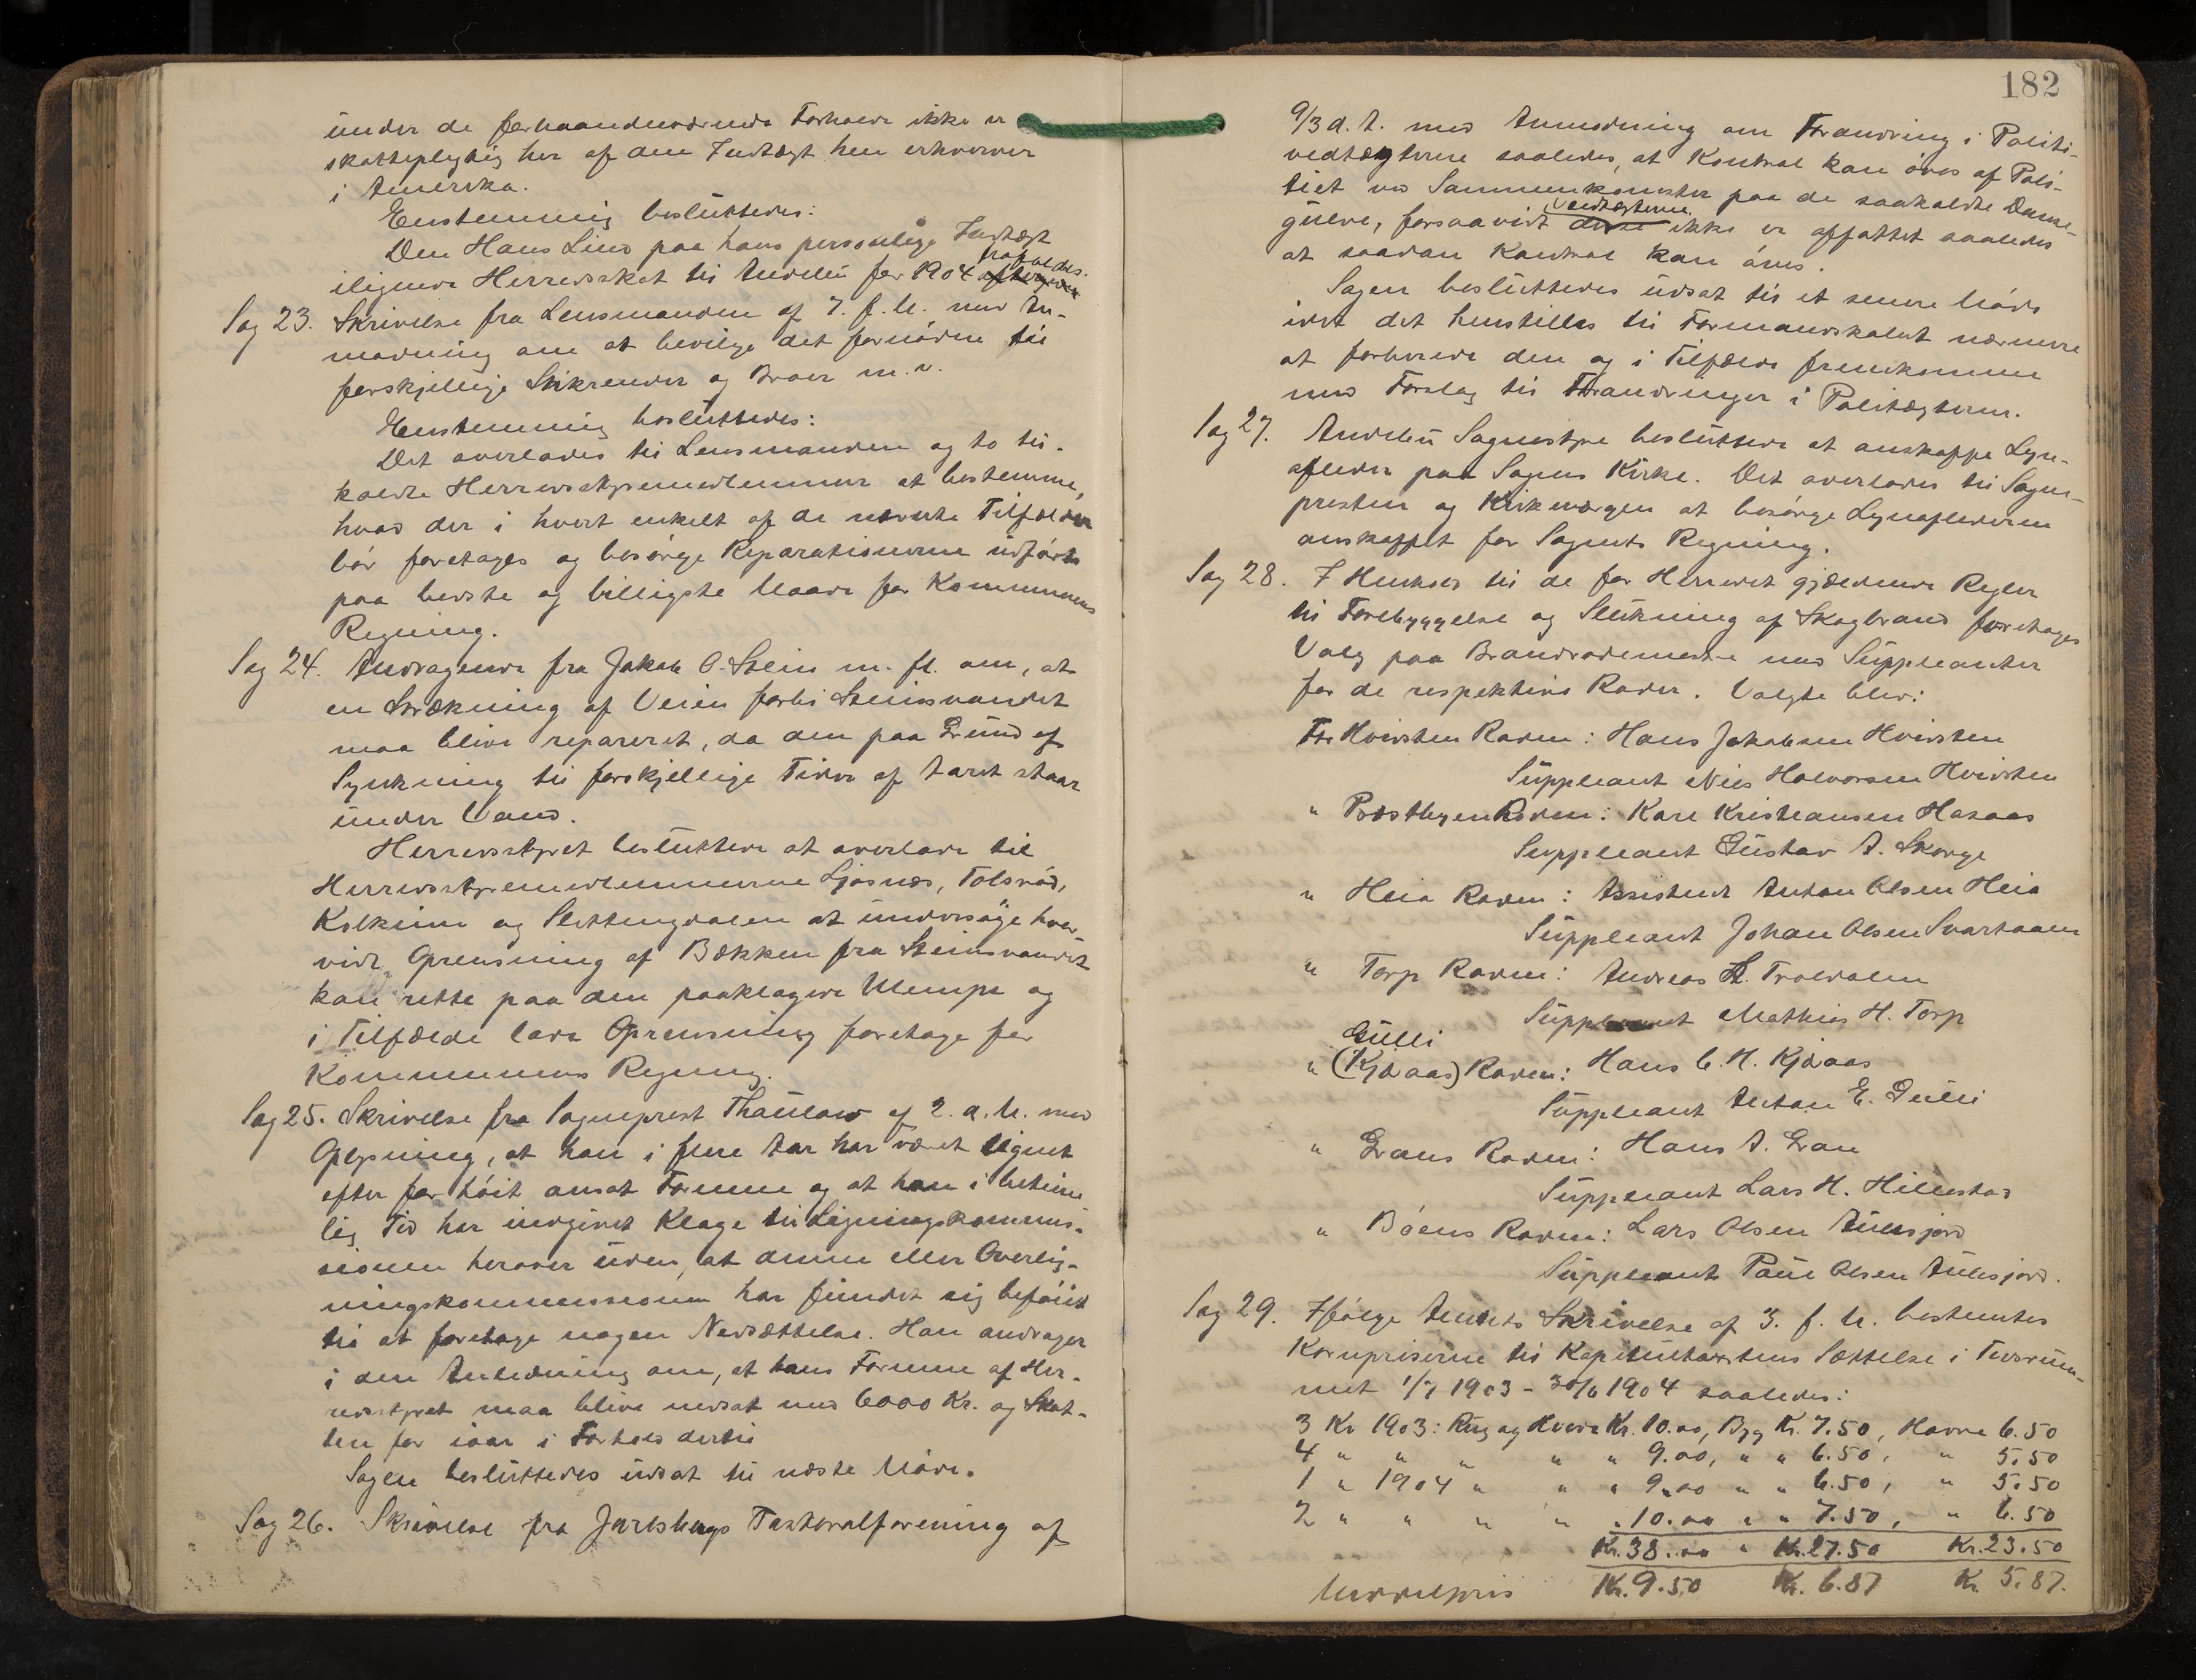 under de forhaandenværende Forholde ikke er
skattepligtig her af den Indtægt han erhverver
i Amerika.
Enstemmig besluttedes:
Den Hans Lind paa hans personlige Indtægt
ilignede Herredsskat til Andebu for 1904 frafaldes.
Sag 23. Skrivelse fra Lensmanden af 7. f. M. med An-
modning om at bevilge det fornødne til
forskjellige Stikrender og Broer m. v.
Enstemmig besluttedes:
Det overlades til Lensmanden og to til-
kaldte Herredsstyremedlemmer at bestemme,
hvad der i hvert enkelt af de nævnte Tilfælder
bør foretages og besørge Reparationerne udført
paa bedste og billigste Maade for Kommunens
Regning.
Sag 24. Andragende fra Jakob O. Stein m. fl. om, at
en Strækning af Veien forbi Steinsvandet
maa blive repareret, da den paa Grund af
Synkning til forskjellige Tider af Aaret staar
under Vand.
Herredsstyret besluttede at overlade til
Herredsstyremedlemmerne Ljøsnæs, Tolsrød,
Kolkinn og Slettingdalen at undersøge hvor-
vidt Oprensning af Bækken fra Steinsvandet
kan rette paa den paaklagede Ulempe og
i Tilfælde lade Oprensning foretage for
Kommunens Regning.
Sag 25. Skrivelse fra Sogneprest Thaulow af 2. d. M. med
Oplysning, at han i flere Aar har været lignet
efter for høit ansat Formue og at han i betime-
lig Tid har indgivet Klage til Ligningskommis-
sionen herover uden, at denne eller Overlig-
ningskommissionen har fundet sig beføiet
til at foretage nogen Nedsættelse. Han andrager
i den Anledning om, at hans Formue af Her-
redsstyret maa blive nedsat med 6000 Kr. og Skat-
ten for iaar i Forhold dertil
Sagen besluttedes udsat til næste Møde.
Sag 26. Skrivelse fra Jarlsbergs Pastoralforening af
182
9/3 d. A. med Anmodning om Forandring i Politi-
vedtægterne saaledes, at Kontrol kan øves af Poli-
tiet ved Sammenkomster paa de saakaldte Danse-
gulve, forsaavidt Vedtægterne ikke er affattet saaledes
at saadan Kontrol kan øves.
Sagen besluttedes udsat til et senere Møde
idet det henstilles til Formandskabet nærmere
at forberede den og i Tilfælde fremkomme
med Forslag til Forandringer i Politægterne.
Sag 27. Andebu Sognestyre besluttede at anskaffe Lyn-
afleder paa Sognets Kirke. Det overlades til Sogne-
presten og Kirkeværgen at besørge Lynaflederen
anskaffet for Sognets Regning.
Sag 28. I Henhold til de for Herredet gjældende Regler
til Forebyggelse og Slukning af Skogbrand foretages
Valg paa Brandrodemestre med Suppleanter
for de respektive Roder. Valgte blev:
For Hvidsten Roden: Hans Jakobsen Hvidsten
Suppleant Nils Halvorsen Hvidsten
" Præstbyen Roden: Karl Kristiansen Hasaas
Suppleant Gustav A. Skorge
" Heia Roden: Assistent Anton Olsen Heia
Suppleant Johan Olsen Svartaaen
" Torp Roden: Andreas H. Troldalen
Suppleant Mathias H. Torp
Gulli
" (Kjdaas) Roden: Hans C. H. Kjdaas
Suppleant Anton E. Gulli
" Grans Roden: Hans A. Gran
Suppleant Lars H. Hillestad
" Bøens Roden: Lars Olsen Aulesjord
Suppleant Paul Olsen Aulesjord.
Sag 29. Ifølge Amtets Skrivelse af 3. f. M. bestemtes
Kornpriserne til Kapiteltaxtens Sættelse i Tidsrum-
met 1/7 1903 - 30/6 1904 saaledes:
3 Kv 1903: Rug og Hvede Kr. 10.00, Byg Kr. 7.50, Havre 6.50
4 " " " " " 9.00, " " 6.50, " 5.50
1 " 1904 " " " 9.00 " " 6.50, " 5.50
2 " " " " " 10.00 " " 7.50, " 6.50
Kr. 38.00 " Kr. 27.50 Kr. 23.50
Middelpris Kr. 9.50 Kr. 6.87 Kr 5.87.